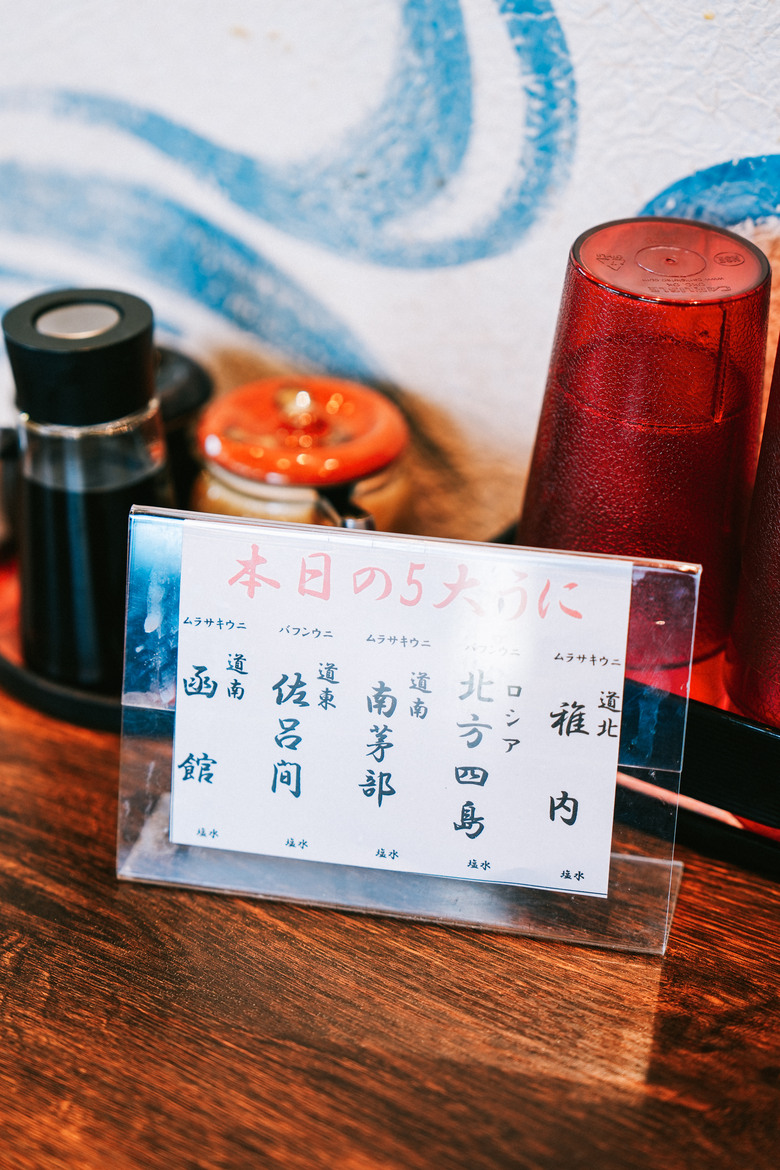 本日の5大うに
ムラサキウニ
道北
稚内
塩水
バフンウニ
ロシア
北方四島
塩水
ムラサキウニ
道南
南茅部
塩水
バフンウニ
道東
佐呂間
塩水
ムラサキウニ
道南
函館
塩水